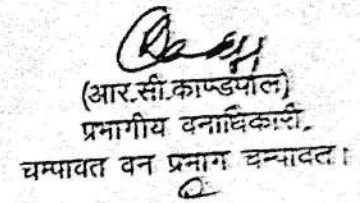 (आर.सी.काण्डपाल)
प्रभागीय वनाधिकारी,
चम्पावत वन प्रभाग चम्पावत।